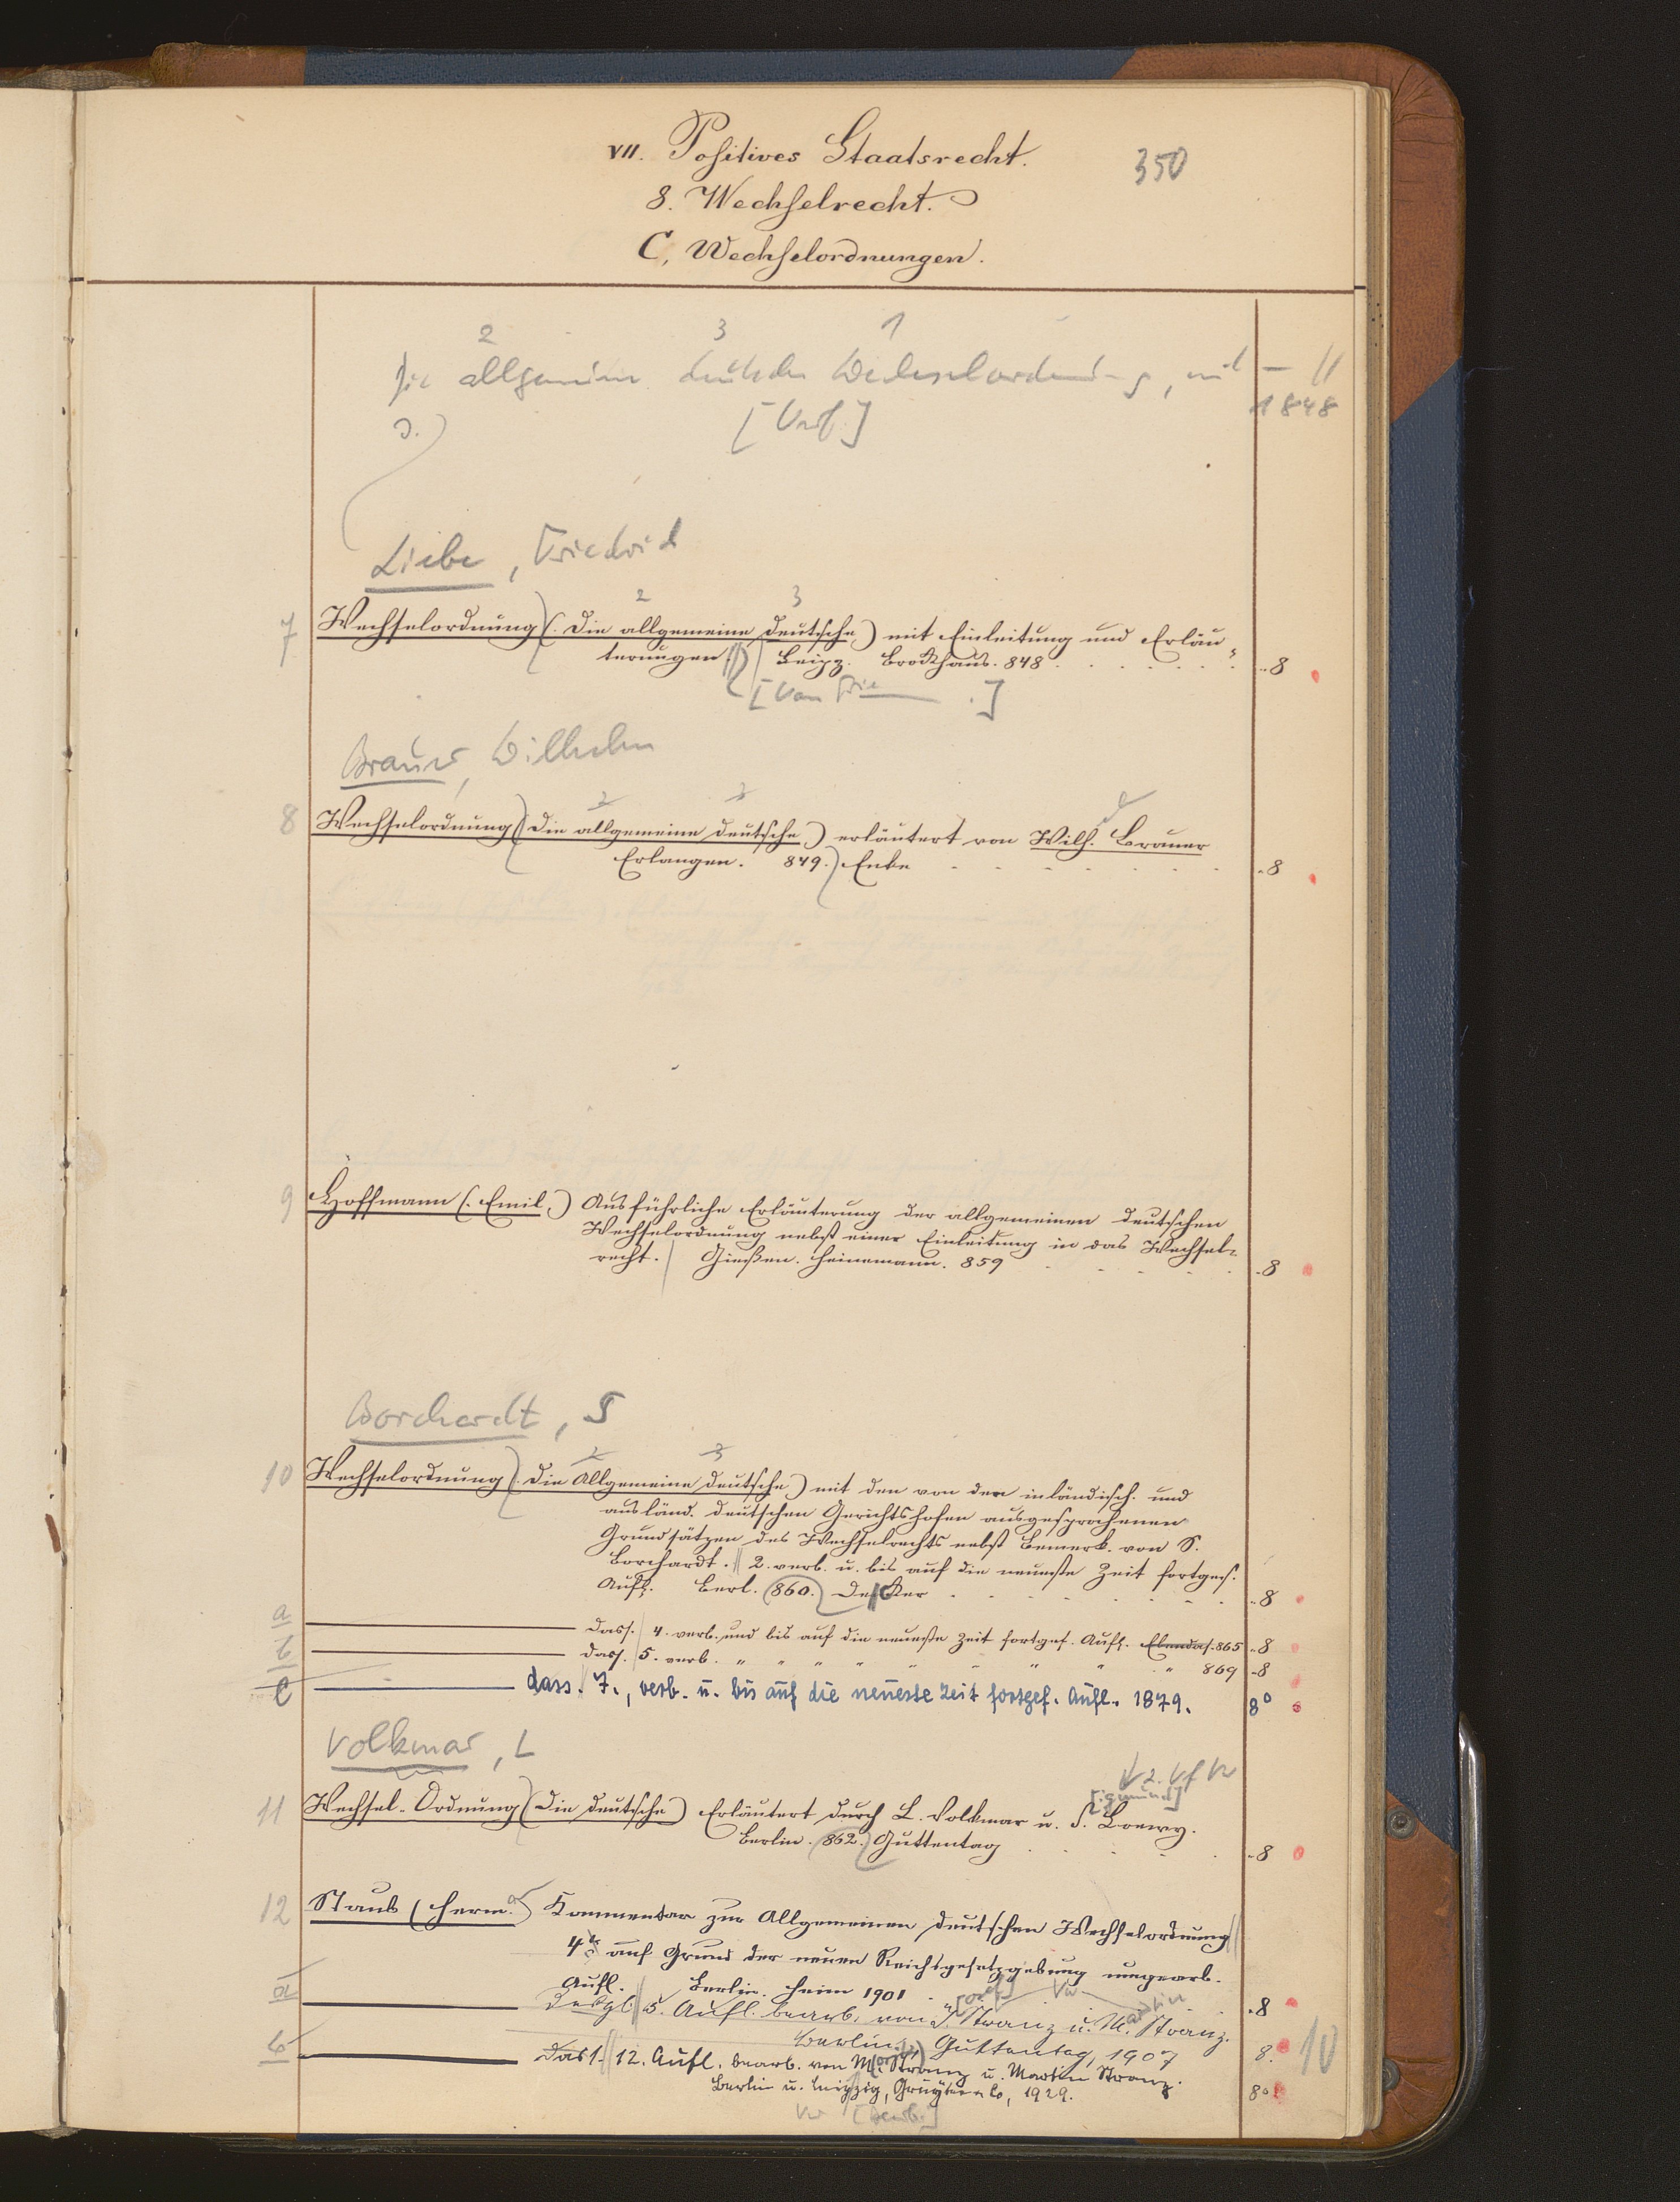 VII. Positives Staatsrecht.
350
8. Wechselrecht.
C. Wechselordnungen.
2 3 1
Die allgemeine deutsche Wechselordnung, mit — //
1848
[Verf.]
Liebe, Friedrich
2 3
7 Wechselordnung (Die allgemeine deutsche) mit Einleitung und Erläu-
terungen. Leipz. Brockhaus. 848. 8
[Von Frie .]
Brauer, Wilhelm
2 3
8 Wechselordnung (Die allgemeine deutsche) erläutert von Wilh. Brauer
Erlangen. 849. Enke 8
9 Hoffmann (Emil.) Ausführliche Erläuterung der allgemeinen deutschen
Wechselordnung nebst einer Einleitung in das Wechsel-
recht. Gießen. Heinemann. 859 8
Borchardt, S
2 3
10 Wechselordnung (Die Allgemeine deutsche) mit den von den inländisch. und
ausländ. deutschen Gerichtshofen ausgesprochenen
Grundsätzen des Wechselrechts nebst Bemerk. von S.
Borchardt. 2. verb. u. bis auf die neueste Zeit fortges.
Aufl. Berl. 860. Decker 8
a dass. 4. verb. und bis auf die neueste Zeit fortges. Aufl. Ebendas. 865 8
b dass. 5. verb. " " " " " " " " " 869 8
c dass. 7., verb. u. bis auf die neueste Zeit fortges. Aufl. 1879. 8°
Volkmar, L
2. Vf
11 Wechsel-Ordnung (Die deutsche) Erläutert durch L. Volkmar u. S. Loewy.
[igmund]
Berlin. 862. Guttentag 8
12 Staub (Herm.) Kommentar zur Allgemeinen deutschen Wechselordnung
4te auf Grund der neuen Reichsgesetzgebung umgearb.
Aufl. Berlin. Heine 1901 8
a Desgl. 5. Aufl. bearb. von J. Stranz u. M. Stranz.
[osef] artin
Berlin, Guttentag, 1907 8. 10
b Dass. 12. Aufl. bearb. von M. Stranz u. Martin Stranz.
Berlin u. Leipzig, Gruyter & Co, 1929. 8°
[Bearb.]